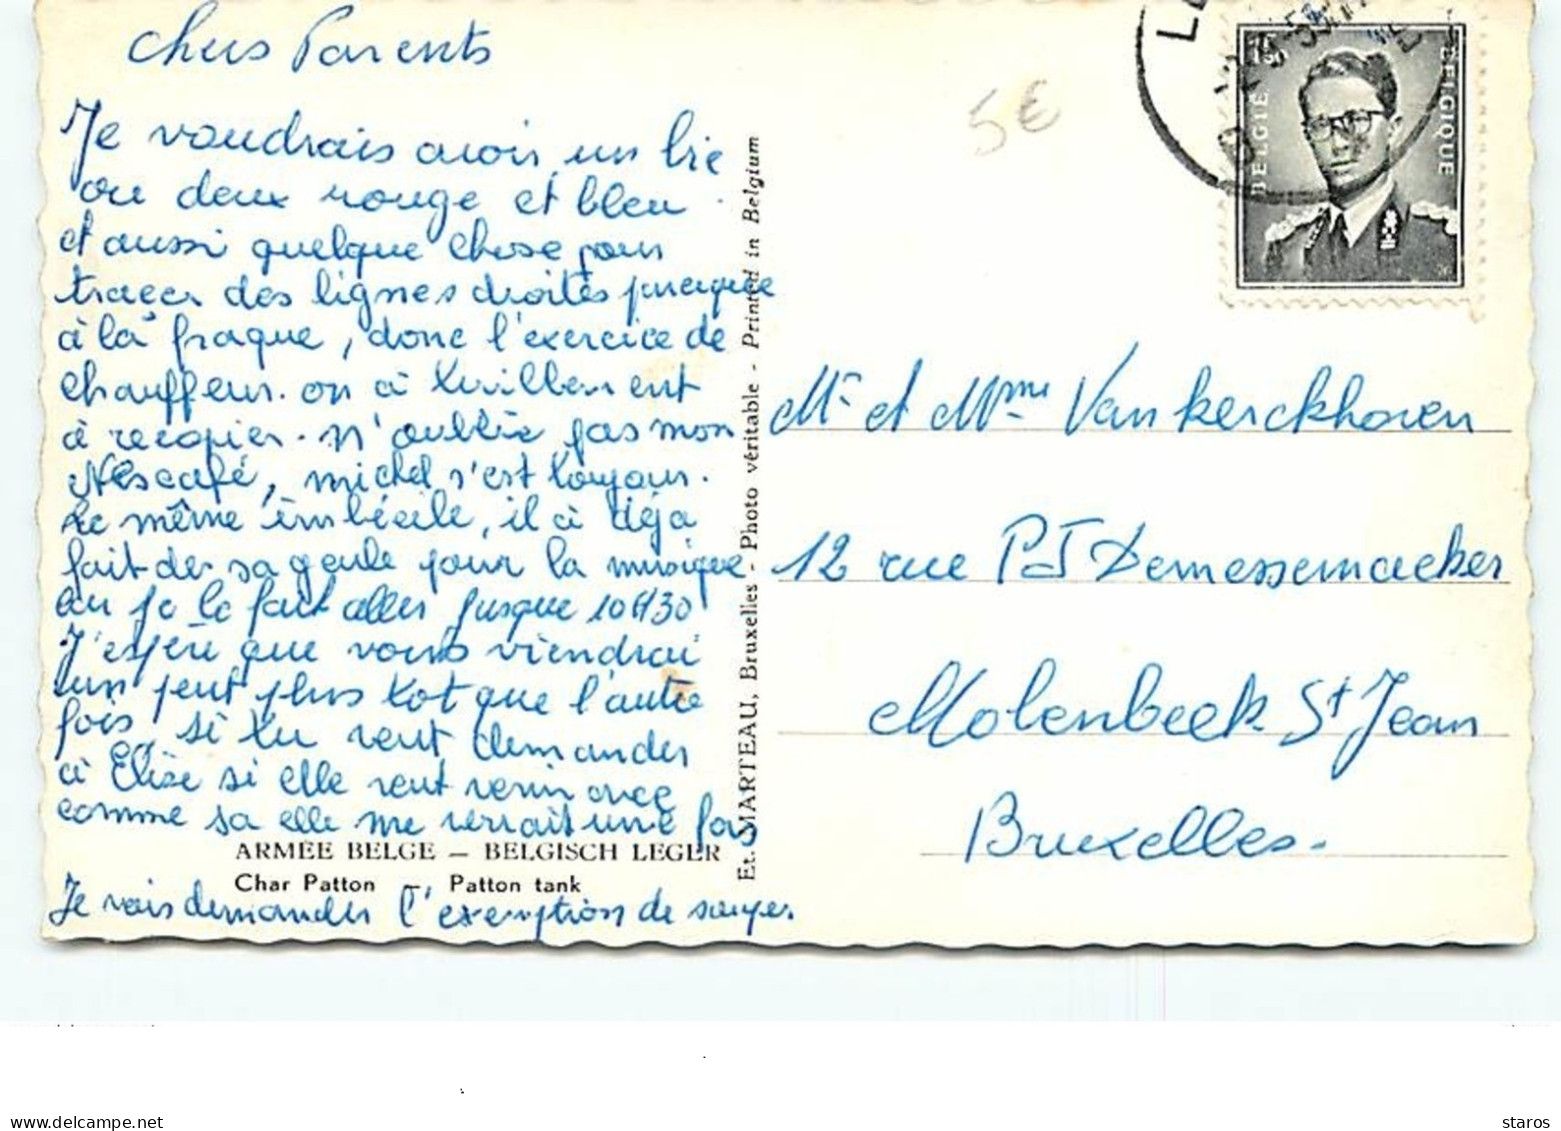 chers Parents
Je voudrais avoir un bic
ou deux rouge et bleu
et aussi quelque chose pour
tracer des lignes droites
à la fraque, donc l'exercice de
chauffeur. on à
à recopier. n'oublie pas mon
Nescafé, michel s'est toujours.
Le même imbécile, il à déjà
fait de sa geule pour la musique
je le fait aller jusque 10H30
J'espère que vous viendrai
un peut plus tot que l'autre
fois, si tu veut demander
à Elise si elle veut venir avec
comme sa elle me verrait une fois
ARMÉE BELGE — BELGISCH LEGER
Char Patton — Patton tank
Je vais demander l'exemption de
Et. MARTEAU, Bruxelles - Photo véritable - Printed in Belgium
5€
BELGIË
BELGIQUE
Mr et Mme Vankerckhoven
12 rue PJ Demessemaeker
Molenbeek St Jean
Bruxelles.
www.delcampe.net
staros